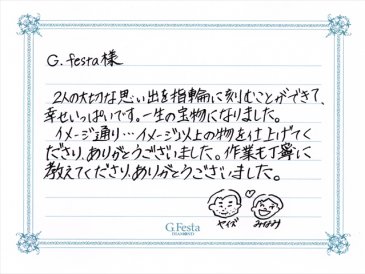 G.festa様
2人の大切な思い出を指輪に刻むことができて、
幸せいっぱいです。一生の宝物になりました。
イメージ通り…イメージ以上の物を仕上げてく
ださり、ありがとうございました。作業も丁寧に
教えてくださり、ありがとうございました。
G.Festa
DIAMOND
ヤイズ
みなみ